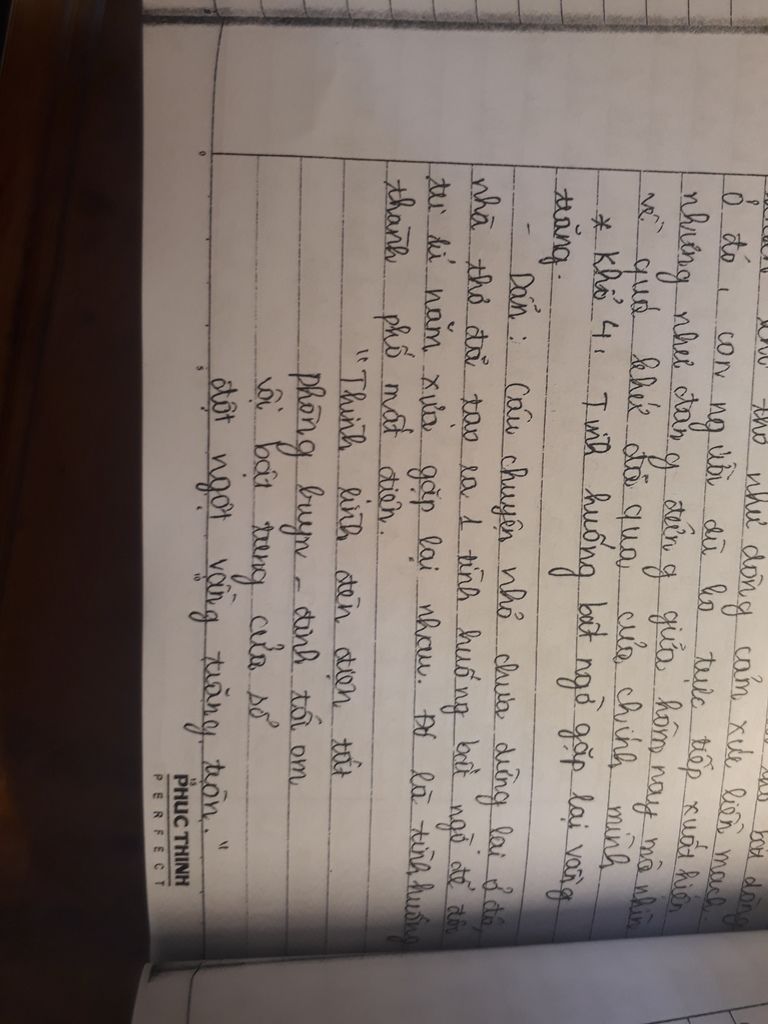 thơ như dòng cảm xúc liền mạch.
Ở đó, con người dù ko trực tiếp xuất hiện
nhưng như đang đứng giữa hôm nay mà nhìn
về quá khứ đã qua của chính mình
* Khổ 4: Tình huống bất ngờ gặp lại vầng
trăng.
- Dẫn: Câu chuyện nhỏ chưa dừng lại ở đó,
nhà thơ đã tạo ra 1 tình huống bất ngờ để đôi
tư kỉ năm xưa gặp lại nhau. Đó là tình huống
thành phố mất điện.
"Thình lình đèn điện tắt
phòng buyn - đinh tối om
vội bật tung cửa sổ
đột ngột vầng trăng tròn."
PHUC THINH
PERFECT